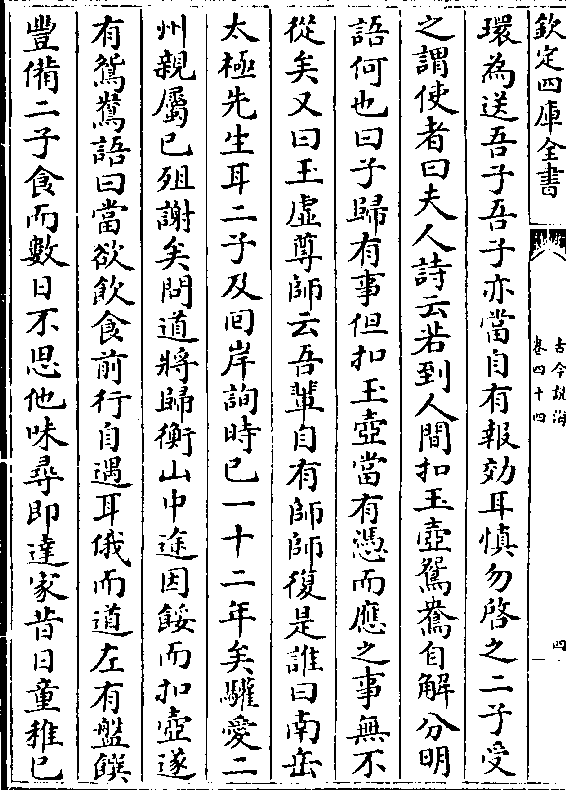 欽定四庫全書
古今說海
卷四十四
四
環為送吾子吾子亦當自有報効耳慎勿啓之二子受
之謂使者曰夫人詩云若到人間扣玉壺鴛鴦自解分明
語何也曰子歸有事但扣玉壺當有鴛鴦應之事無不
從矣又曰玉虛尊師云吾輩自有師師復是誰曰南岳
太極先生耳二子及囘岸詢時已一十二年矣驩愛二
州親屬已殂謝矣問道將歸衡山中途因餒而扣壺遂
有鴛鴦語曰當欲飲食前行自遇耳俄而道左有盤饌
豐備二子食而數日不思他味尋即達家昔日童稚已